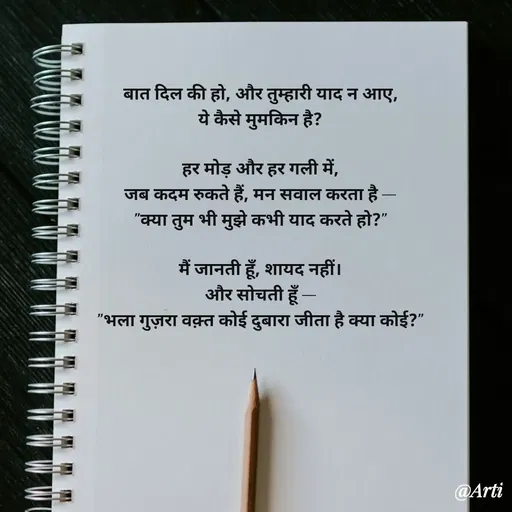 बात दिल की हो, और तुम्हारी याद न आए,
ये कैसे मुमकिन है?
हर मोड़ और हर गली में,
जब कदम रुकते हैं, मन सवाल करता है —
"क्या तुम भी मुझे कभी याद करते हो?"
मैं जानती हूँ, शायद नहीं।
और सोचती हूँ —
"भला गुज़रा वक़्त कोई दुबारा जीता है क्या कोई?"
@Arti